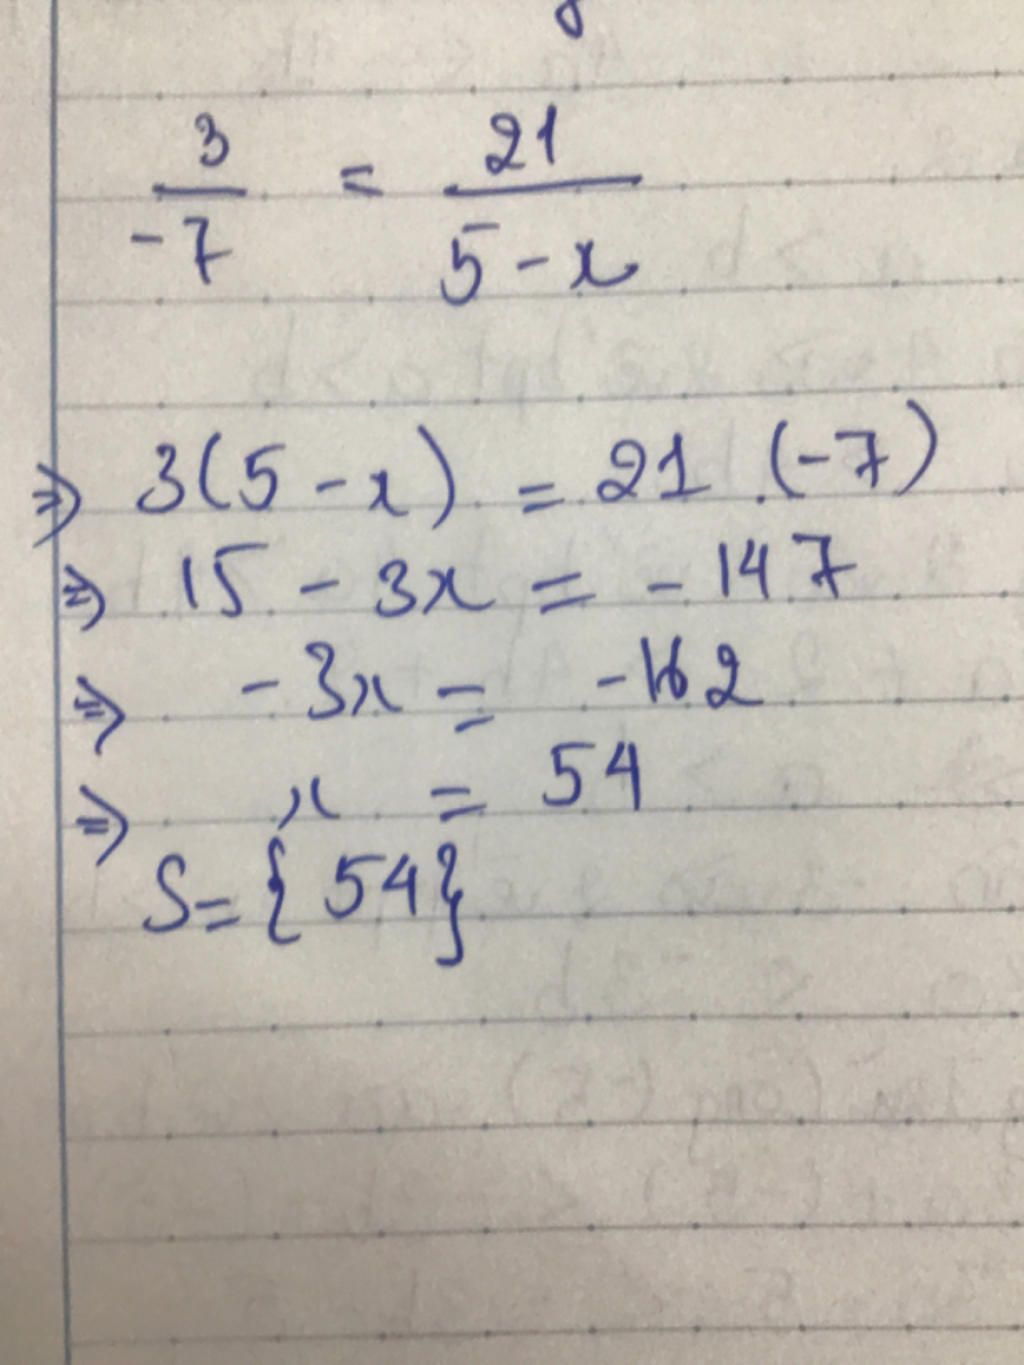 3/-7 = 21/5-x
⇒ 3(5 - x) = 21 . (-7)
⇒ 15 - 3x = - 147
⇒ -3x = -162
⇒ x = 54
S= {54}